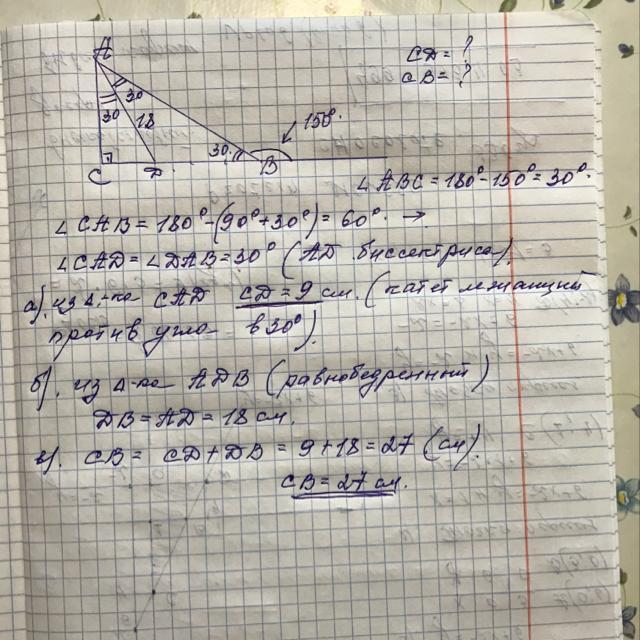 A
CD = ?
CB = ?
30 30
18
30
150°
C D B
∠ABC = 180° - 150° = 30°.
∠CAB = 180° - (90° + 30°) = 60°. →
∠CAD = ∠DAB = 30° (AD биссектриса).
а). из Δ-ка CAD CD = 9 см. (катет лежащий
против угла в 30°).
б). из Δ-ка ADB (равнобедренный)
DB = AD = 18 см.
в). CB = CD + DB = 9 + 18 = 27 (см).
CB = 27 см.